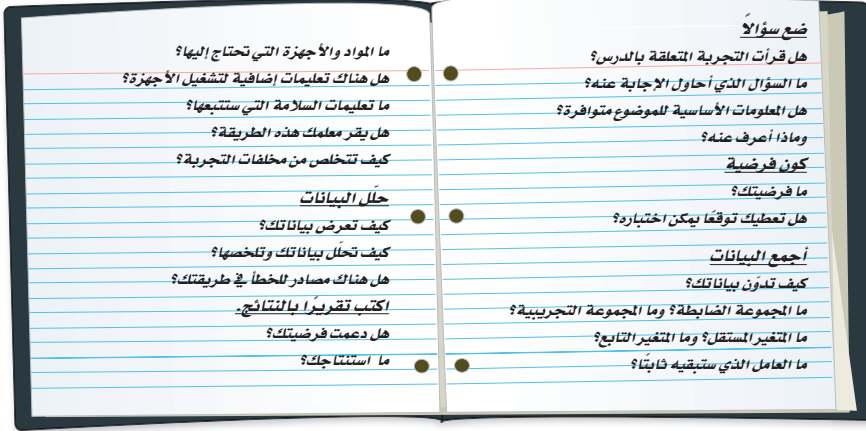 ضع سؤالاً
هل قرأت التجربة المتعلقة بالدرس؟
ما السؤال الذي أحاول الإجابة عنه؟
هل المعلومات الأساسية للموضوع متوافرة؟
وماذا أعرف عنه؟
كون فرضية
ما فرضيتك؟
هل تعطيك توقعًا يمكن اختباره؟
أجمع البيانات
كيف تدوّن بياناتك؟
ما المجموعة الضابطة؟ وما المجموعة التجريبية؟
ما المتغير المستقل؟ وما المتغير التابع؟
ما العامل الذي ستبقيه ثابتًا؟
ما المواد والأجهزة التي تحتاج إليها؟
هل هناك تعليمات إضافية لتشغيل الأجهزة؟
ما تعليمات السلامة التي ستتبعها؟
هل يقر معلمك هذه الطريقة؟
كيف تتخلص من مخلفات التجربة؟
حلّل البيانات
كيف تعرض بياناتك؟
كيف تحلّل بياناتك وتلخصها؟
هل هناك مصادر للخطأ في طريقتك؟
اكتب تقريرًا بالنتائج.
هل دعمت فرضيتك؟
ما استنتاجك؟